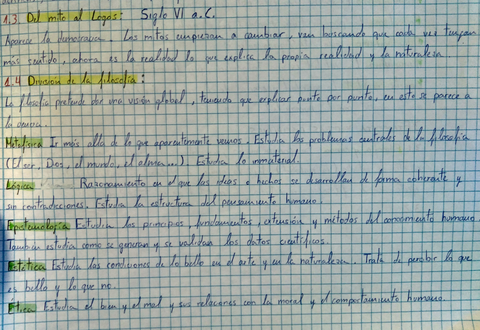 1.3 Del mito al Logos: Siglo VI a.C.
Aparece la democracia. Los mitos empiezan a cambiar, van buscando que cada vez tengan
más sentido, ahora es la realidad lo que explica la propia realidad y la naturaleza.
1.4 División de la filosofía:
La filosofía pretende dar una visión global, teniendo que explicar punto por punto, en esto se parece a
la ciencia.
Metafísica Ir más allá de lo que aparentemente vemos. Estudia los problemas centrales de la filosofía
(El ser, Dios, el mundo, el alma...) Estudia lo inmaterial.
Lógica Razonamiento en el que las ideas o hechos se desarrollan de forma coherente y
sin contradicciones. Estudia la estructura del pensamiento humano.
Epistemología Estudia los principios, fundamentos, extensión y métodos del conocimiento humano.
También estudia como se generan y se validan los datos científicos.
Estética Estudia las condiciones de lo bello en el arte y en la naturaleza. Trata de percibir lo que
es bello y lo que no.
Ética Estudia el bien y el mal y sus relaciones con la moral y el comportamiento humano.